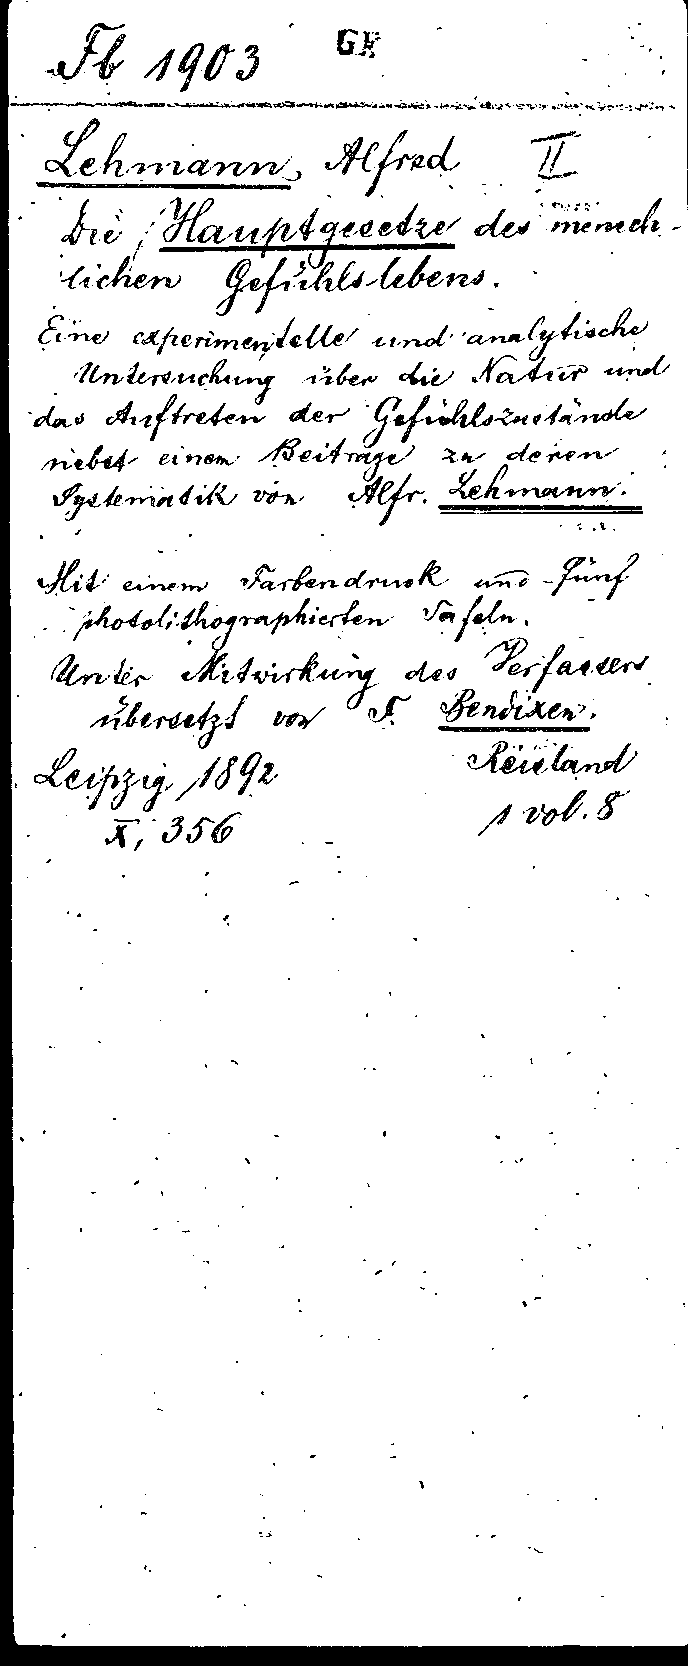 Fb 1903 GF
Lehmann, Alfred II
Die Hauptgesetze des mensch-
lichen Gefühlslebens.
Eine experimentelle und analytische
Untersuchung über die Natur und
das Auftreten der Gefühlszustände
nebst einem Beitrage zu deren
Systematik von Alfr. Lehmann.
Mit einem Farbendruck und fünf
photolithographierten Tafeln.
Unter Mitwirkung des Verfassers
übersetzt von F. Bendixen.
Leipzig 1892 Reisland
X, 356 1 vol. 8